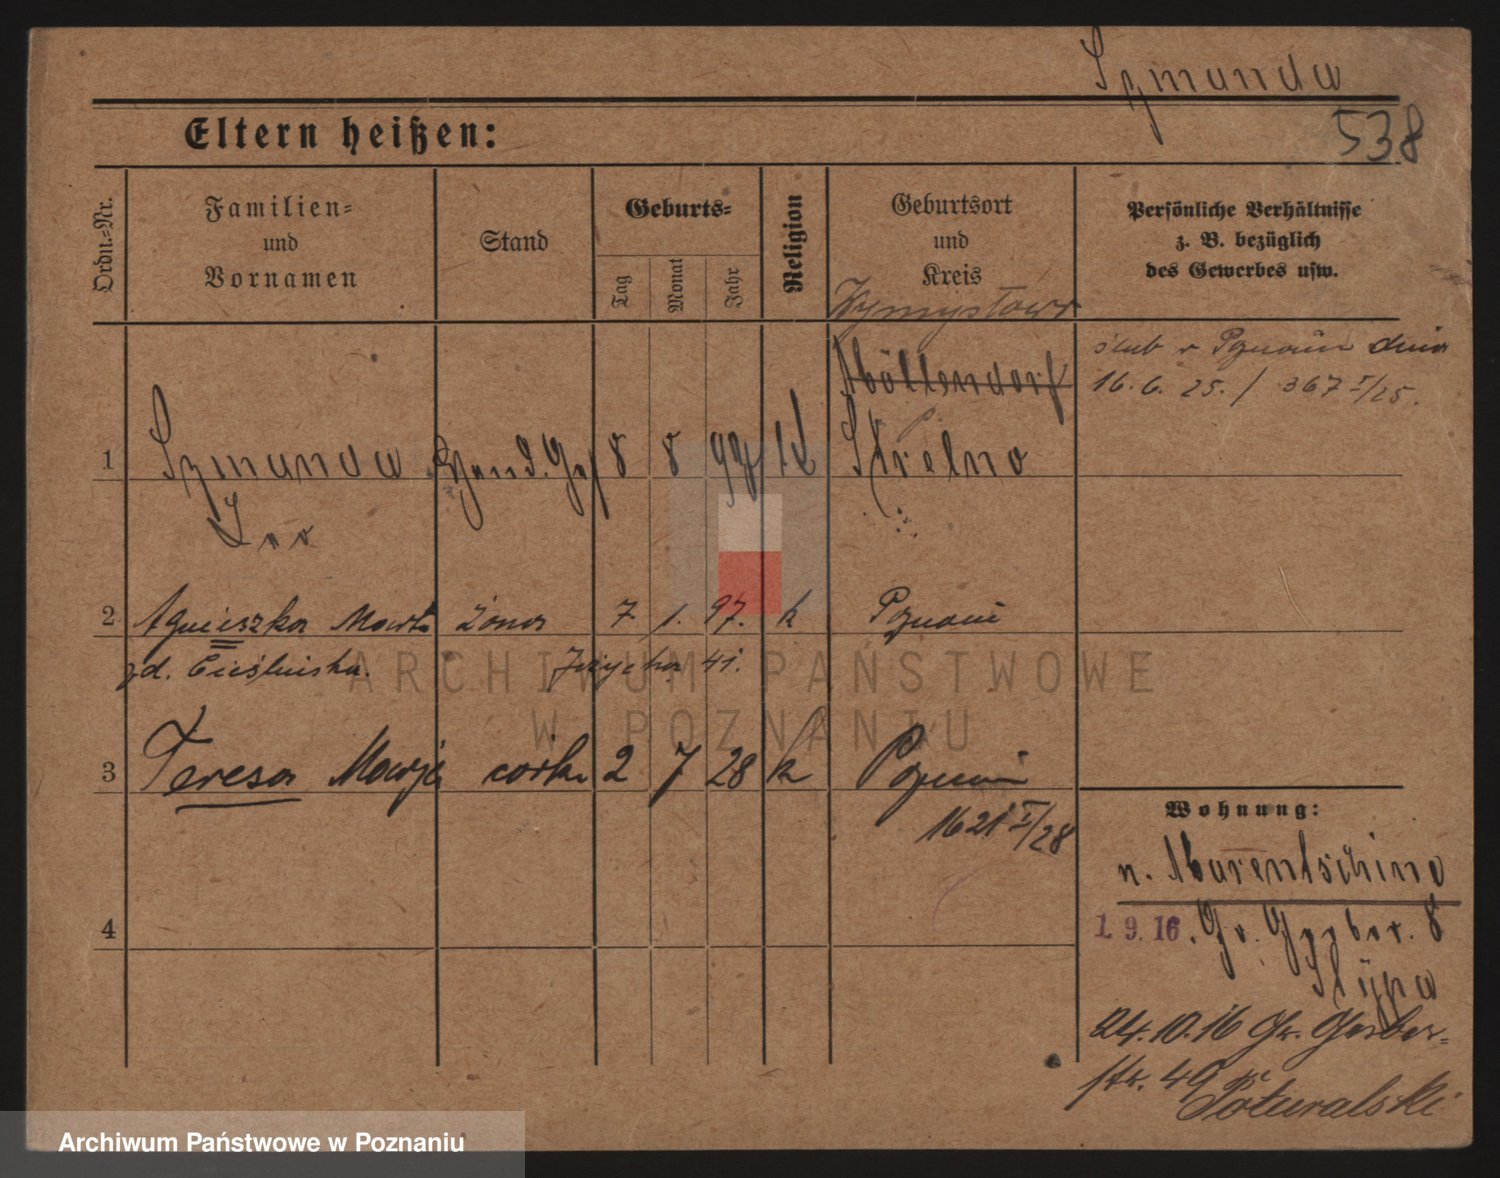 Szmanda
538
Eltern heißen:
Ordn.-Nr.
Familien-
und
Vornamen
Stand
Geburts-
Tag
Monat
Jahr
Religion
Geburtsort
und
Kreis
Persönliche Verhältnisse
z. B. bezüglich
des Gewerbes usw.
Wymysłowo
ślub w Poznaniu dnia
16. 6. 25. / 367 I/25.
Möllendorf
1 Szmanda 8 8 97 k Strelno
Leo
2 Agnieszka Marta żona 7. 1. 97. k Poznań
zd. Cieślińska.
41.
3 Teresa Marja córka 2 7 28 k Poznań
1621 I/28
4
Wohnung:
n. Marentschino
1. 9. 16. Gr. Gerber. 8
24.10.16 Gr. Gerber-
str. 49
ARCHIWUM PAŃSTWOWE
W POZNANIU
Archiwum Państwowe w Poznaniu